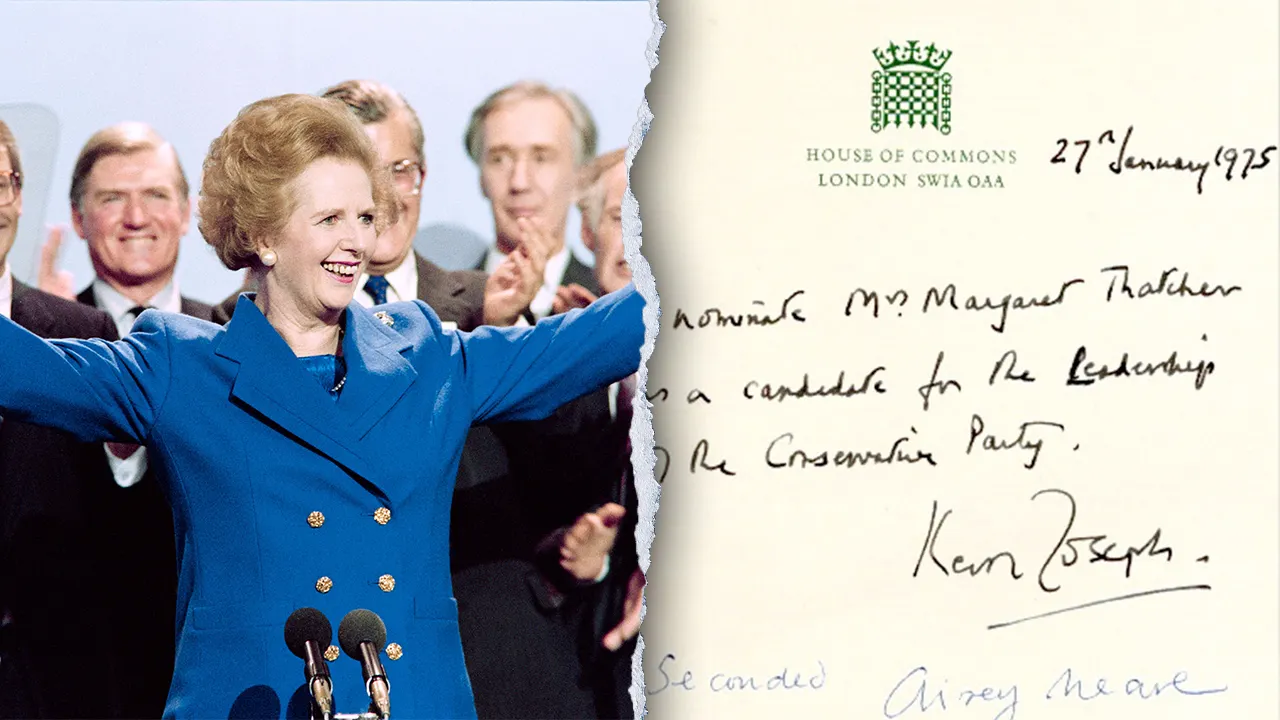 HOUSE OF COMMONS
LONDON SW1A 0AA
27th January 1975
nominate Mrs Margaret Thatcher
as a candidate for the Leadership
of the Conservative Party.
Keith Joseph.
Seconded Airey Neave